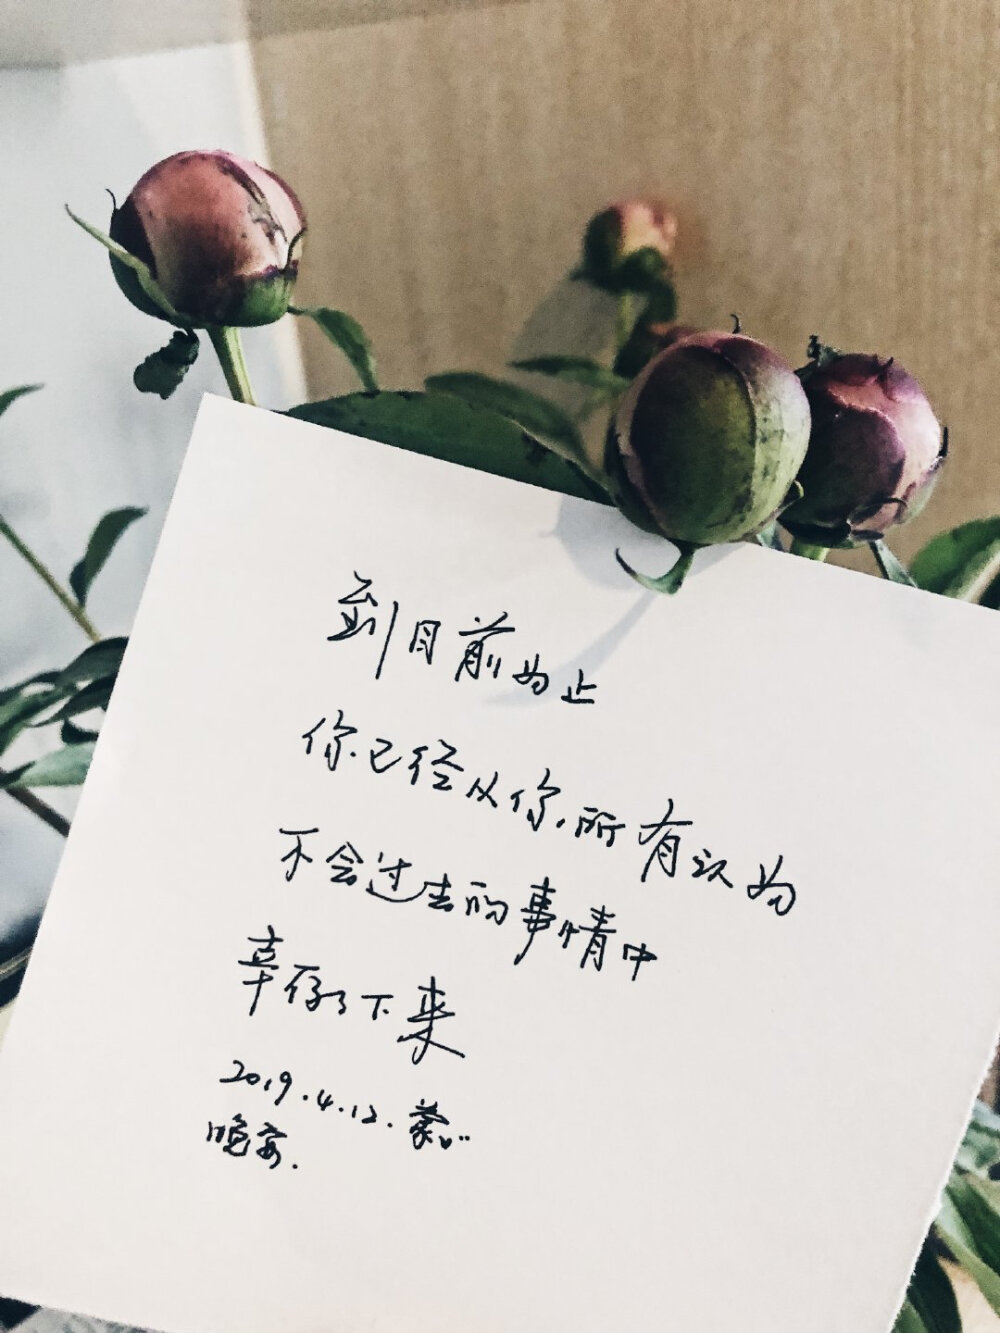 到目前为止
你已经从你所有认为
不会过去的事情中
幸存了下来
2019.4.12.
晚安.